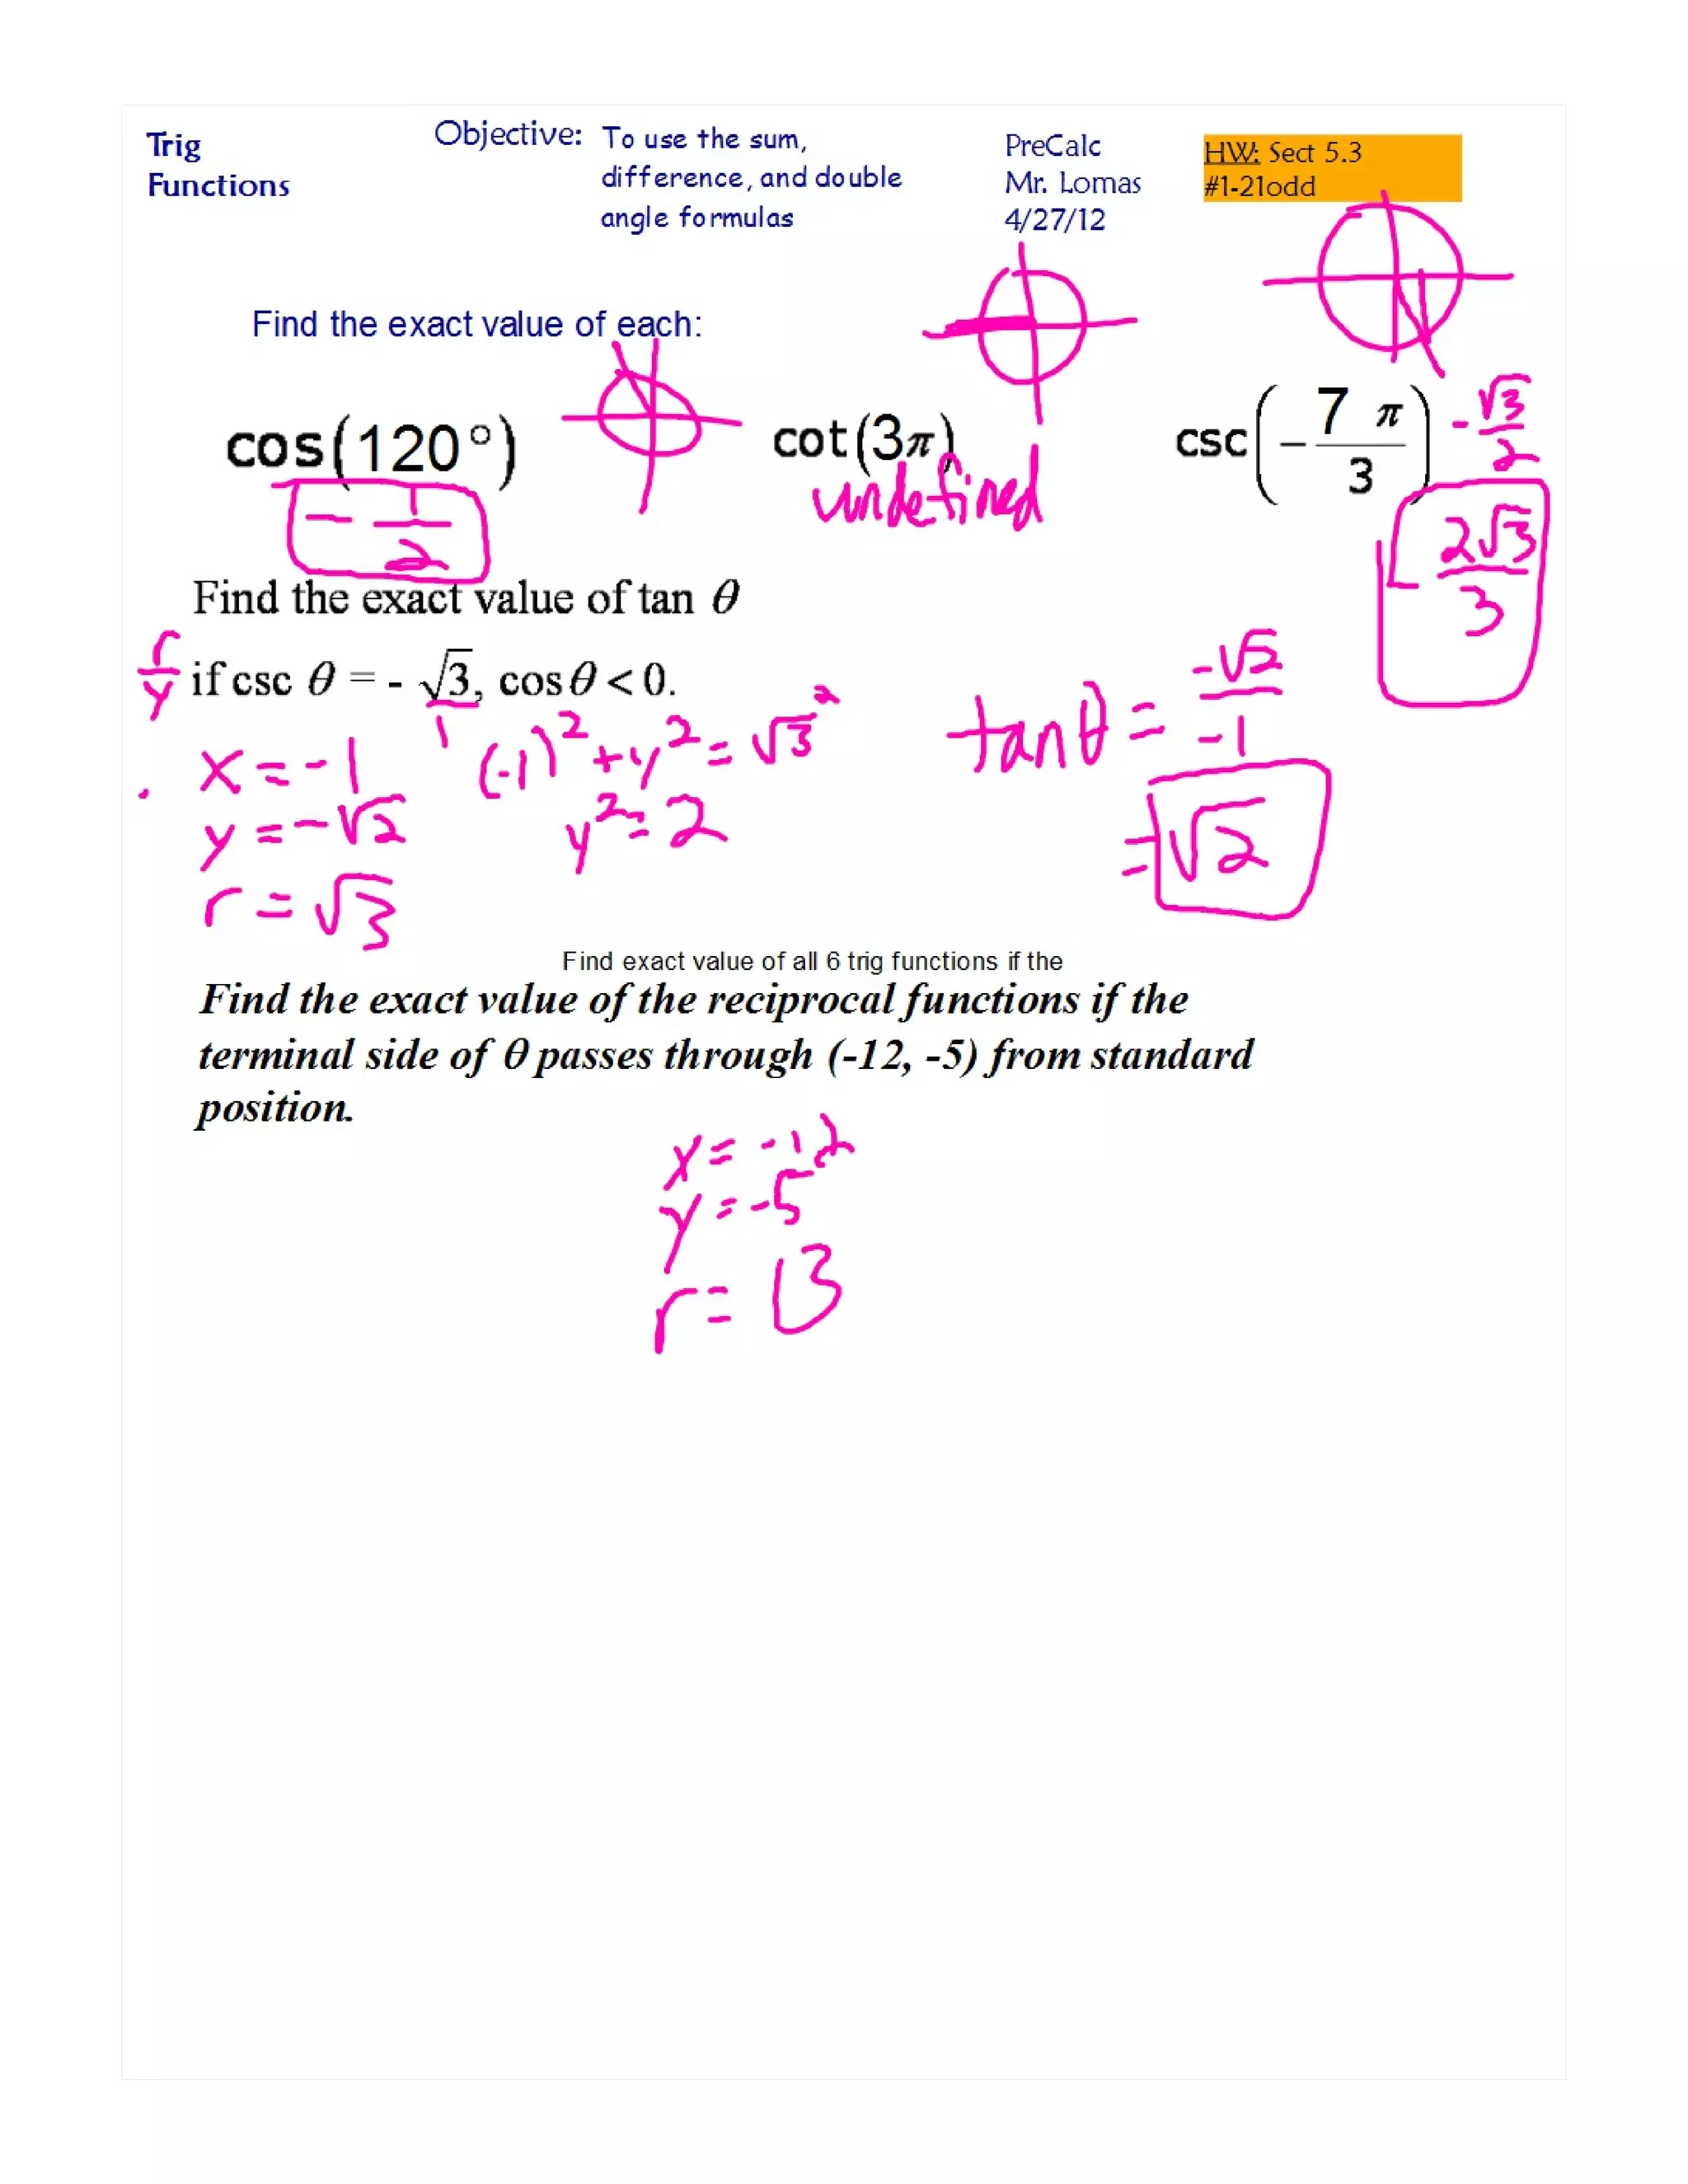 Trig
Functions
Objective: To use the sum,
difference, and double
angle formulas
PreCalc
Mr. Lomas
4/27/12
HW: Sect 5.3
#1-21odd
Find the exact value of each:
cos(120°)
-1/2
cot(3π)
undefined
csc(-7π/3)
-√3/2
-2√3/3
Find the exact value of tan θ
r/y if csc θ = - √3, cosθ < 0.
1
x = -1
y = -√2
r = √3
(-1)² + y² = √3²
y² = 2
tanθ = -√2/-1
= √2
Find exact value of all 6 trig functions if the
Find the exact value of the reciprocal functions if the
terminal side of θ passes through (-12, -5) from standard
position.
x = -12
y = -5
r = 13